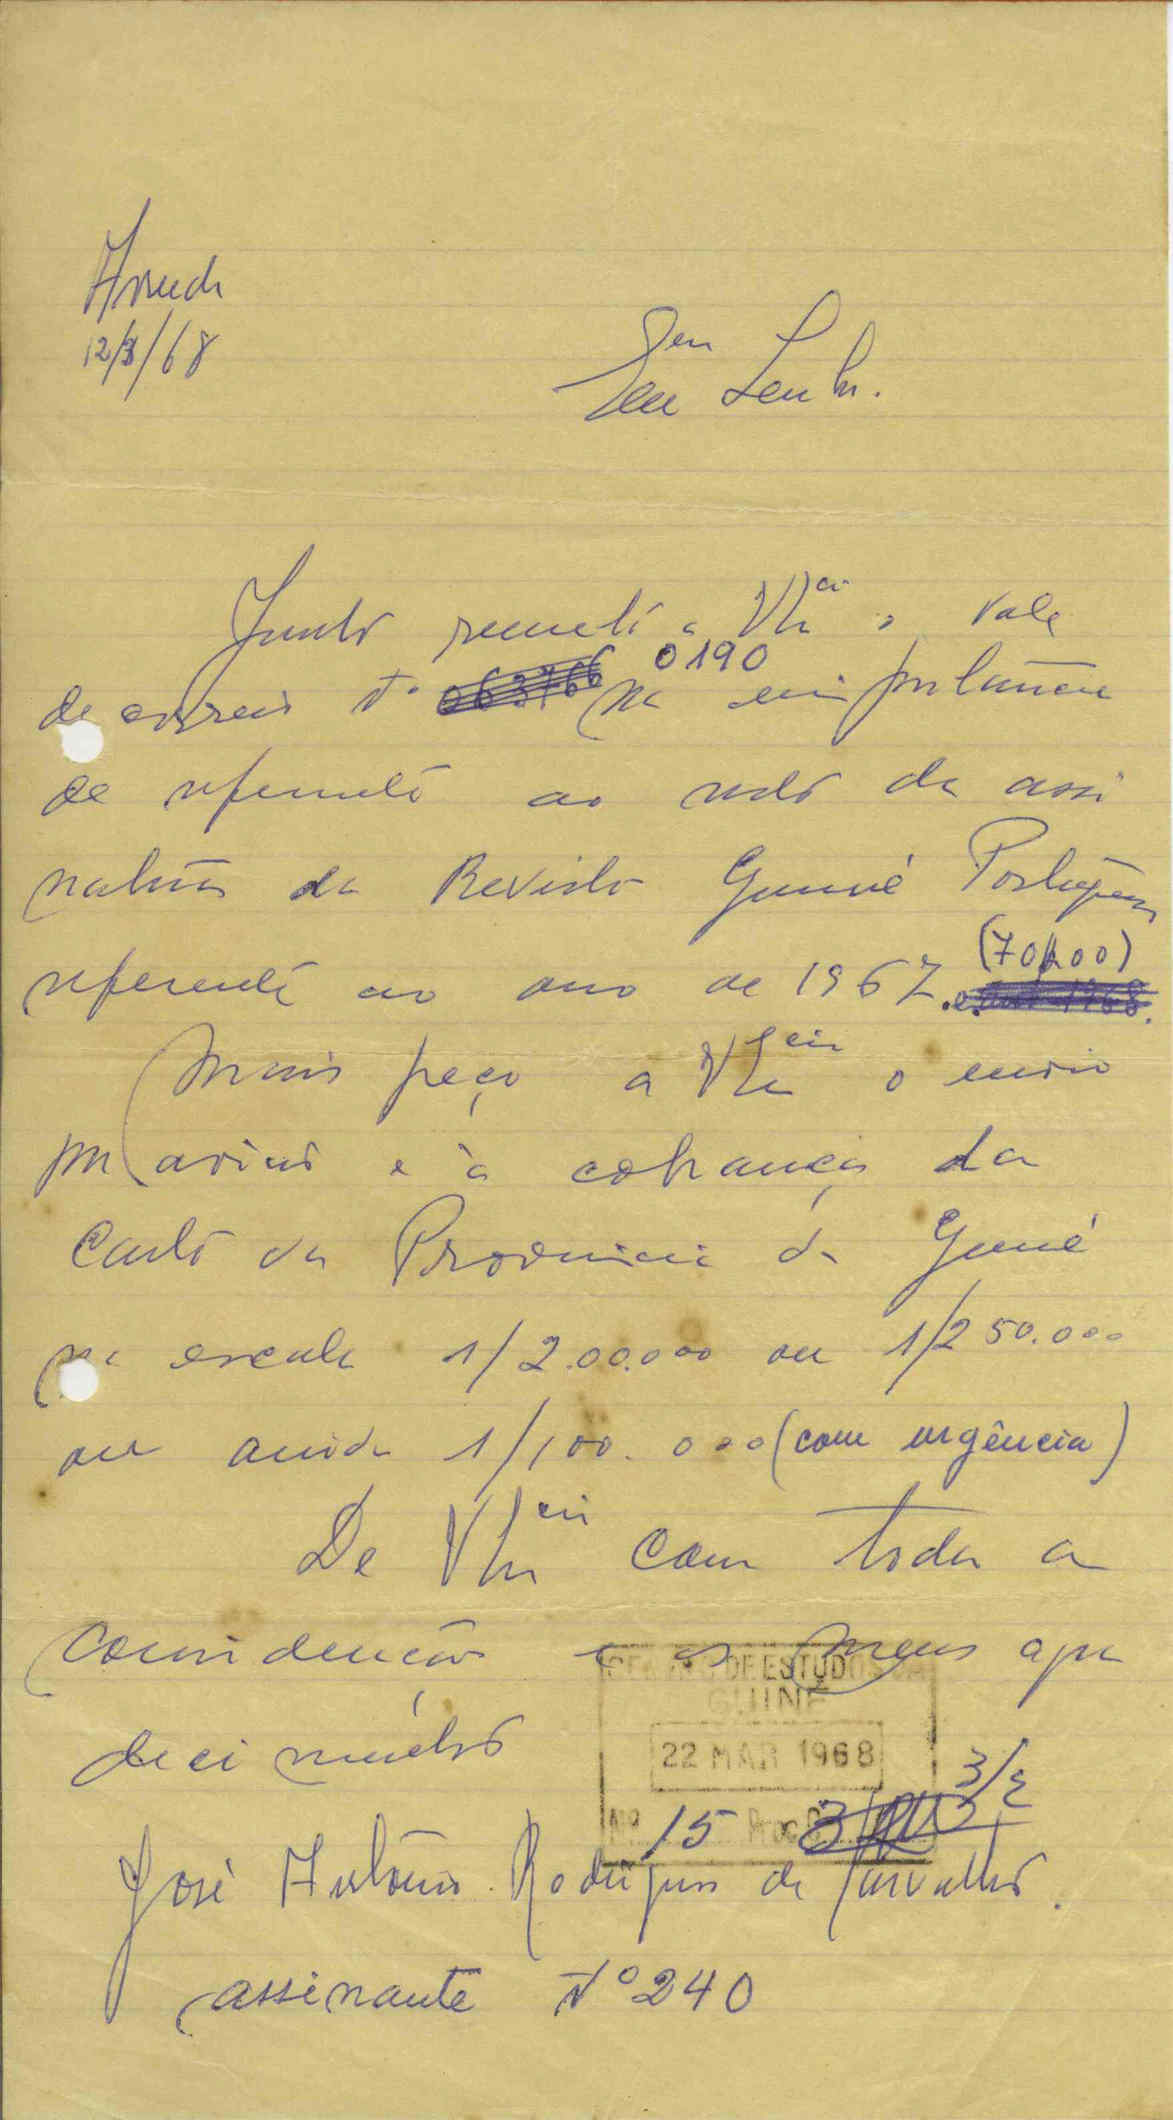 Arruda
12/3/68
Junto remeti a V. Excia o vale
0190
de correio Nº 063766 na importância
de referente ao resto da assi
natura da Revista Guiné Portuguesa
(70$00)
referente ao ano de 1967. e ano 1968.
Mais peço a V. Excia o envio
por avião e à cobrança da
Carta da Provincia da Guiné
na escala 1/200.000 ou 1/250.000
ou ainda 1/100.000 (com urgência)
De V. Excia com toda a
consideração e os meus agra
decimentos
CENTRO DE ESTUDOS DA
GUINÉ
22 MAR 1968
3/E
Nº 15 Proc.
José António Rodrigues de Carvalho.
assinante Nº 240